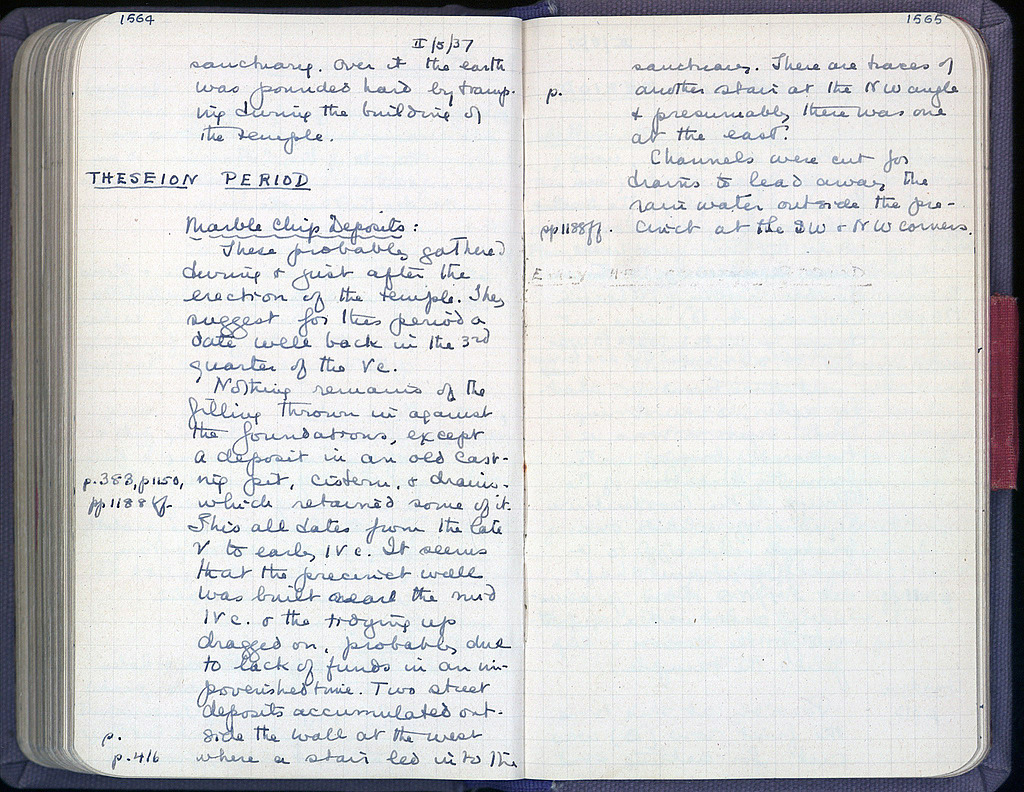 1564
II/5/37
sanctuary. Over it the earth
was pounded hard by tramp-
ing during the building of
the temple.
THESEION PERIOD
Marble Chip Deposits:
These probably gathered
during & just after the
erection of the temple. They
suggest for this period a
date well back in the 3rd
quarter of the V c.
Nothing remains of the
filling thrown in against
the foundations, except
a deposit in an old cast-
p. 388, p 1150, ing pit, cistern, & drains -
pp 1188 ff. which retained some of it.
This all dates from the late
V to early IV c. It seems
that the precinct wall
was built near the mid
IV c. & the tidying up
dragged on, probably due
to lack of funds in an im-
poverished time. Two street
deposits accumulated out-
p. side the wall at the west
p. 416 where a stair led into the
1565
sanctuary. There are traces of
p. another stair at the NW angle
& presumably there was one
at the east.
Channels were cut for
drains to lead away the
rain water outside the pre-
pp 1188 ff. cinct at the SW & NW corners.